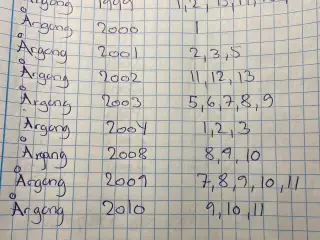 Årgang 1999 1, 2, 
Årgang 2000 1
Årgang 2001 2, 3, 5
Årgang 2002 11, 12, 13
Årgang 2003 5, 6, 7, 8, 9
Årgang 2004 1, 2, 3
Årgang 2008 8, 9, 10
Årgang 2009 7, 8, 9, 10, 11
Årgang 2010 9, 10, 11